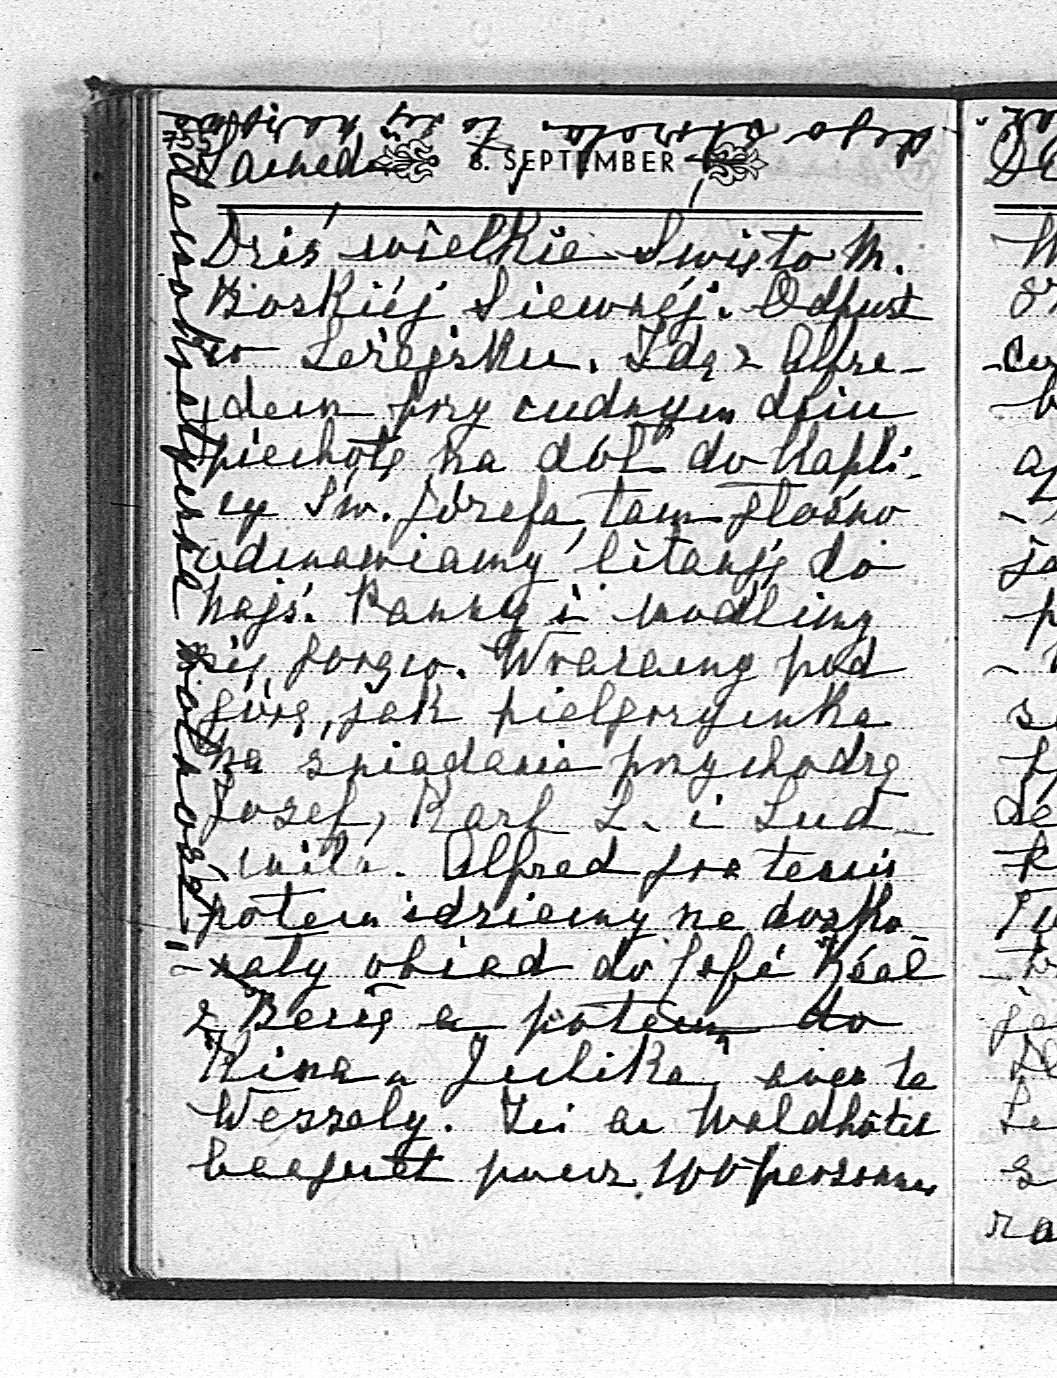 Samedi 8. SEPTEMBER
Dziś wielkie Święto M.
Boskiéj Siewnéj. Odpust
w Leżejsku. Idę z Alfre-
dem przy cudnym dniu
piechotę na dół do Kapli-
cy Św. Józefa, tam głośno
odmawiamy litanję do
Najś. Panny i modlimy
się gorąco. Wracamy pod
górę, jak pielgrzymka
na śniadanie przychodzą
Josef, Karl L. i Lud-
wik. Alfred gra tenis
potem idziemy na dosko-
nały obiad do Café
z a potem do
Kina „Julika" avec la
Wessely. Ici au Waldhôtel
banquet pour 100 personnes